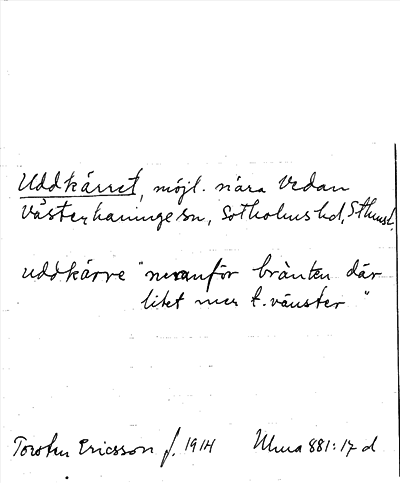 Uddkärret, möjl. nära Vedan
Västerhaninge sn, Sotholms hd, Sthms l.
uddkärre "nevanför brànten där
litet mer t. vänster"
Torsten Ericsson f. 1914 Ulma 881:17 d